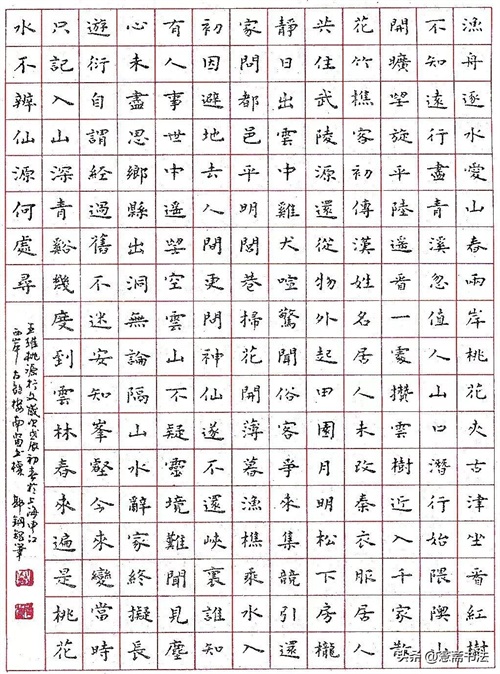 漁舟逐水愛山春兩岸桃花夾古津坐看紅樹
不知遠行盡青溪忽值人山口潛行始隈隩山
開曠望旋平陸遙看一處攢雲樹近入千家散
花竹樵客初傳漢姓名居人未改秦衣服居人
共住武陵源還從物外起田園月明松下房櫳
靜日出雲中雞犬喧驚聞俗客爭來集競引還
家問都邑平明閭巷掃花開薄暮漁樵乘水入
初因避地去人間更問神仙遂不還峽裏誰知
有人事世中遙望空雲山不疑靈境難聞見塵
心未盡思鄉縣出洞無論隔山水辭家終擬長
遊衍自謂經過舊不迷安知峯壑今來變當時
只記入山深青谿幾度到雲林春來遍是桃花
水不辨仙源何處尋
王維桃源行文歲次戊辰初春於上海申江
西岸古樓南窗
头条 @薏斋书法